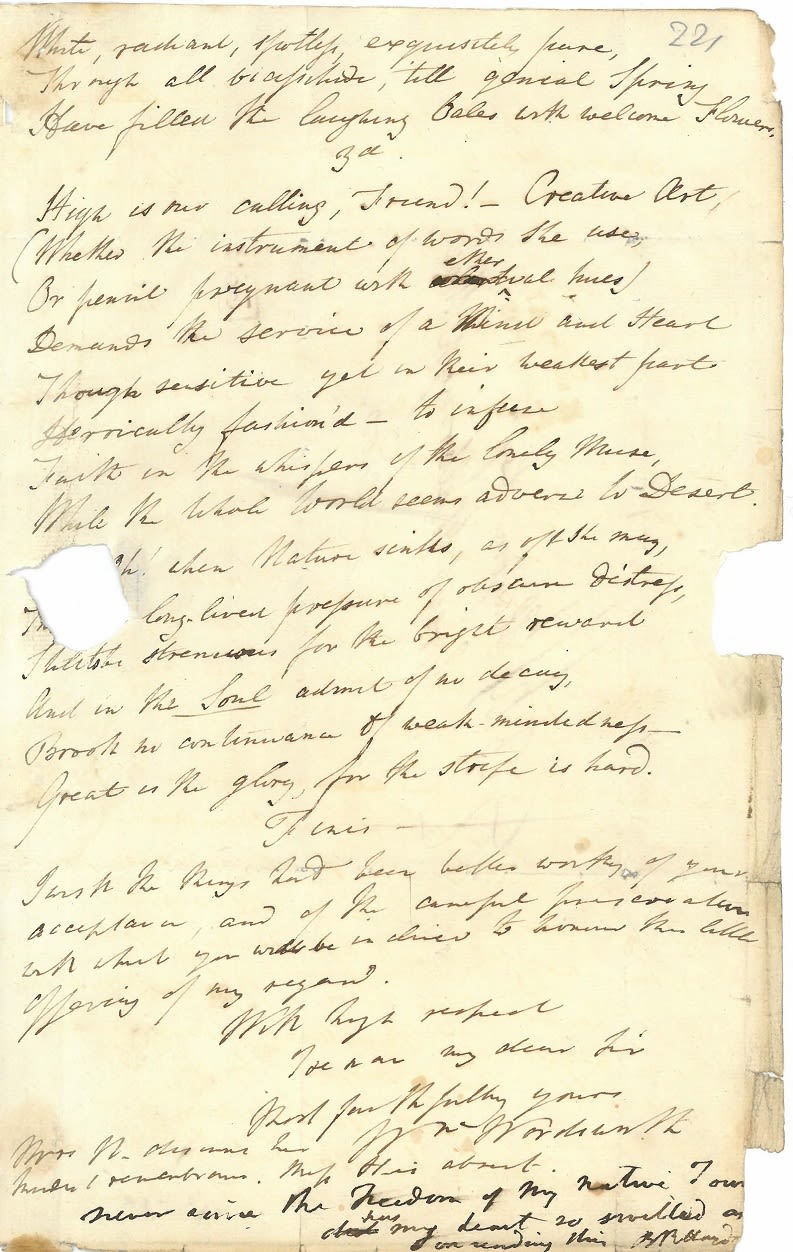 221
White, radiant, spotless, exquisitely pure,
Through all vicissitude, till genial Spring
Have filled the laughing Vales with welcome Flowers.
3d.
High is our calling, Friend! — Creative Art,
(Whether the instrument of words she use,
ether
Or pencil pregnant with etherial hues)
Demands the service of a Mind and Heart
Though sensitive yet in their weakest part
Heroically fashion'd — to infuse
Faith in the whispers of the lonely Muse,
While the whole World seems adverse to Desert.
Oh! when Nature sinks, as oft she may,
long-lived pressure of obscure distress,
Still to be strenuous for the bright reward
And in the Soul admit of no decay,
Brook no continuance of weak-mindedness —
Great is the glory, for the strife is hard.
Finis —
I wish the things had been better worthy of your
acceptance, and of the careful preservation
with which you will be inclined to honour this little
offering of my regard.
With high respect
I remain my dear Sir
Most faithfully yours
Wm Wordsworth
Mrs W. desires her
kindest remembrances. Miss H is absent.
never since the freedom of my native Town
has
did my heart so swelled as
on reading this B R Haydon